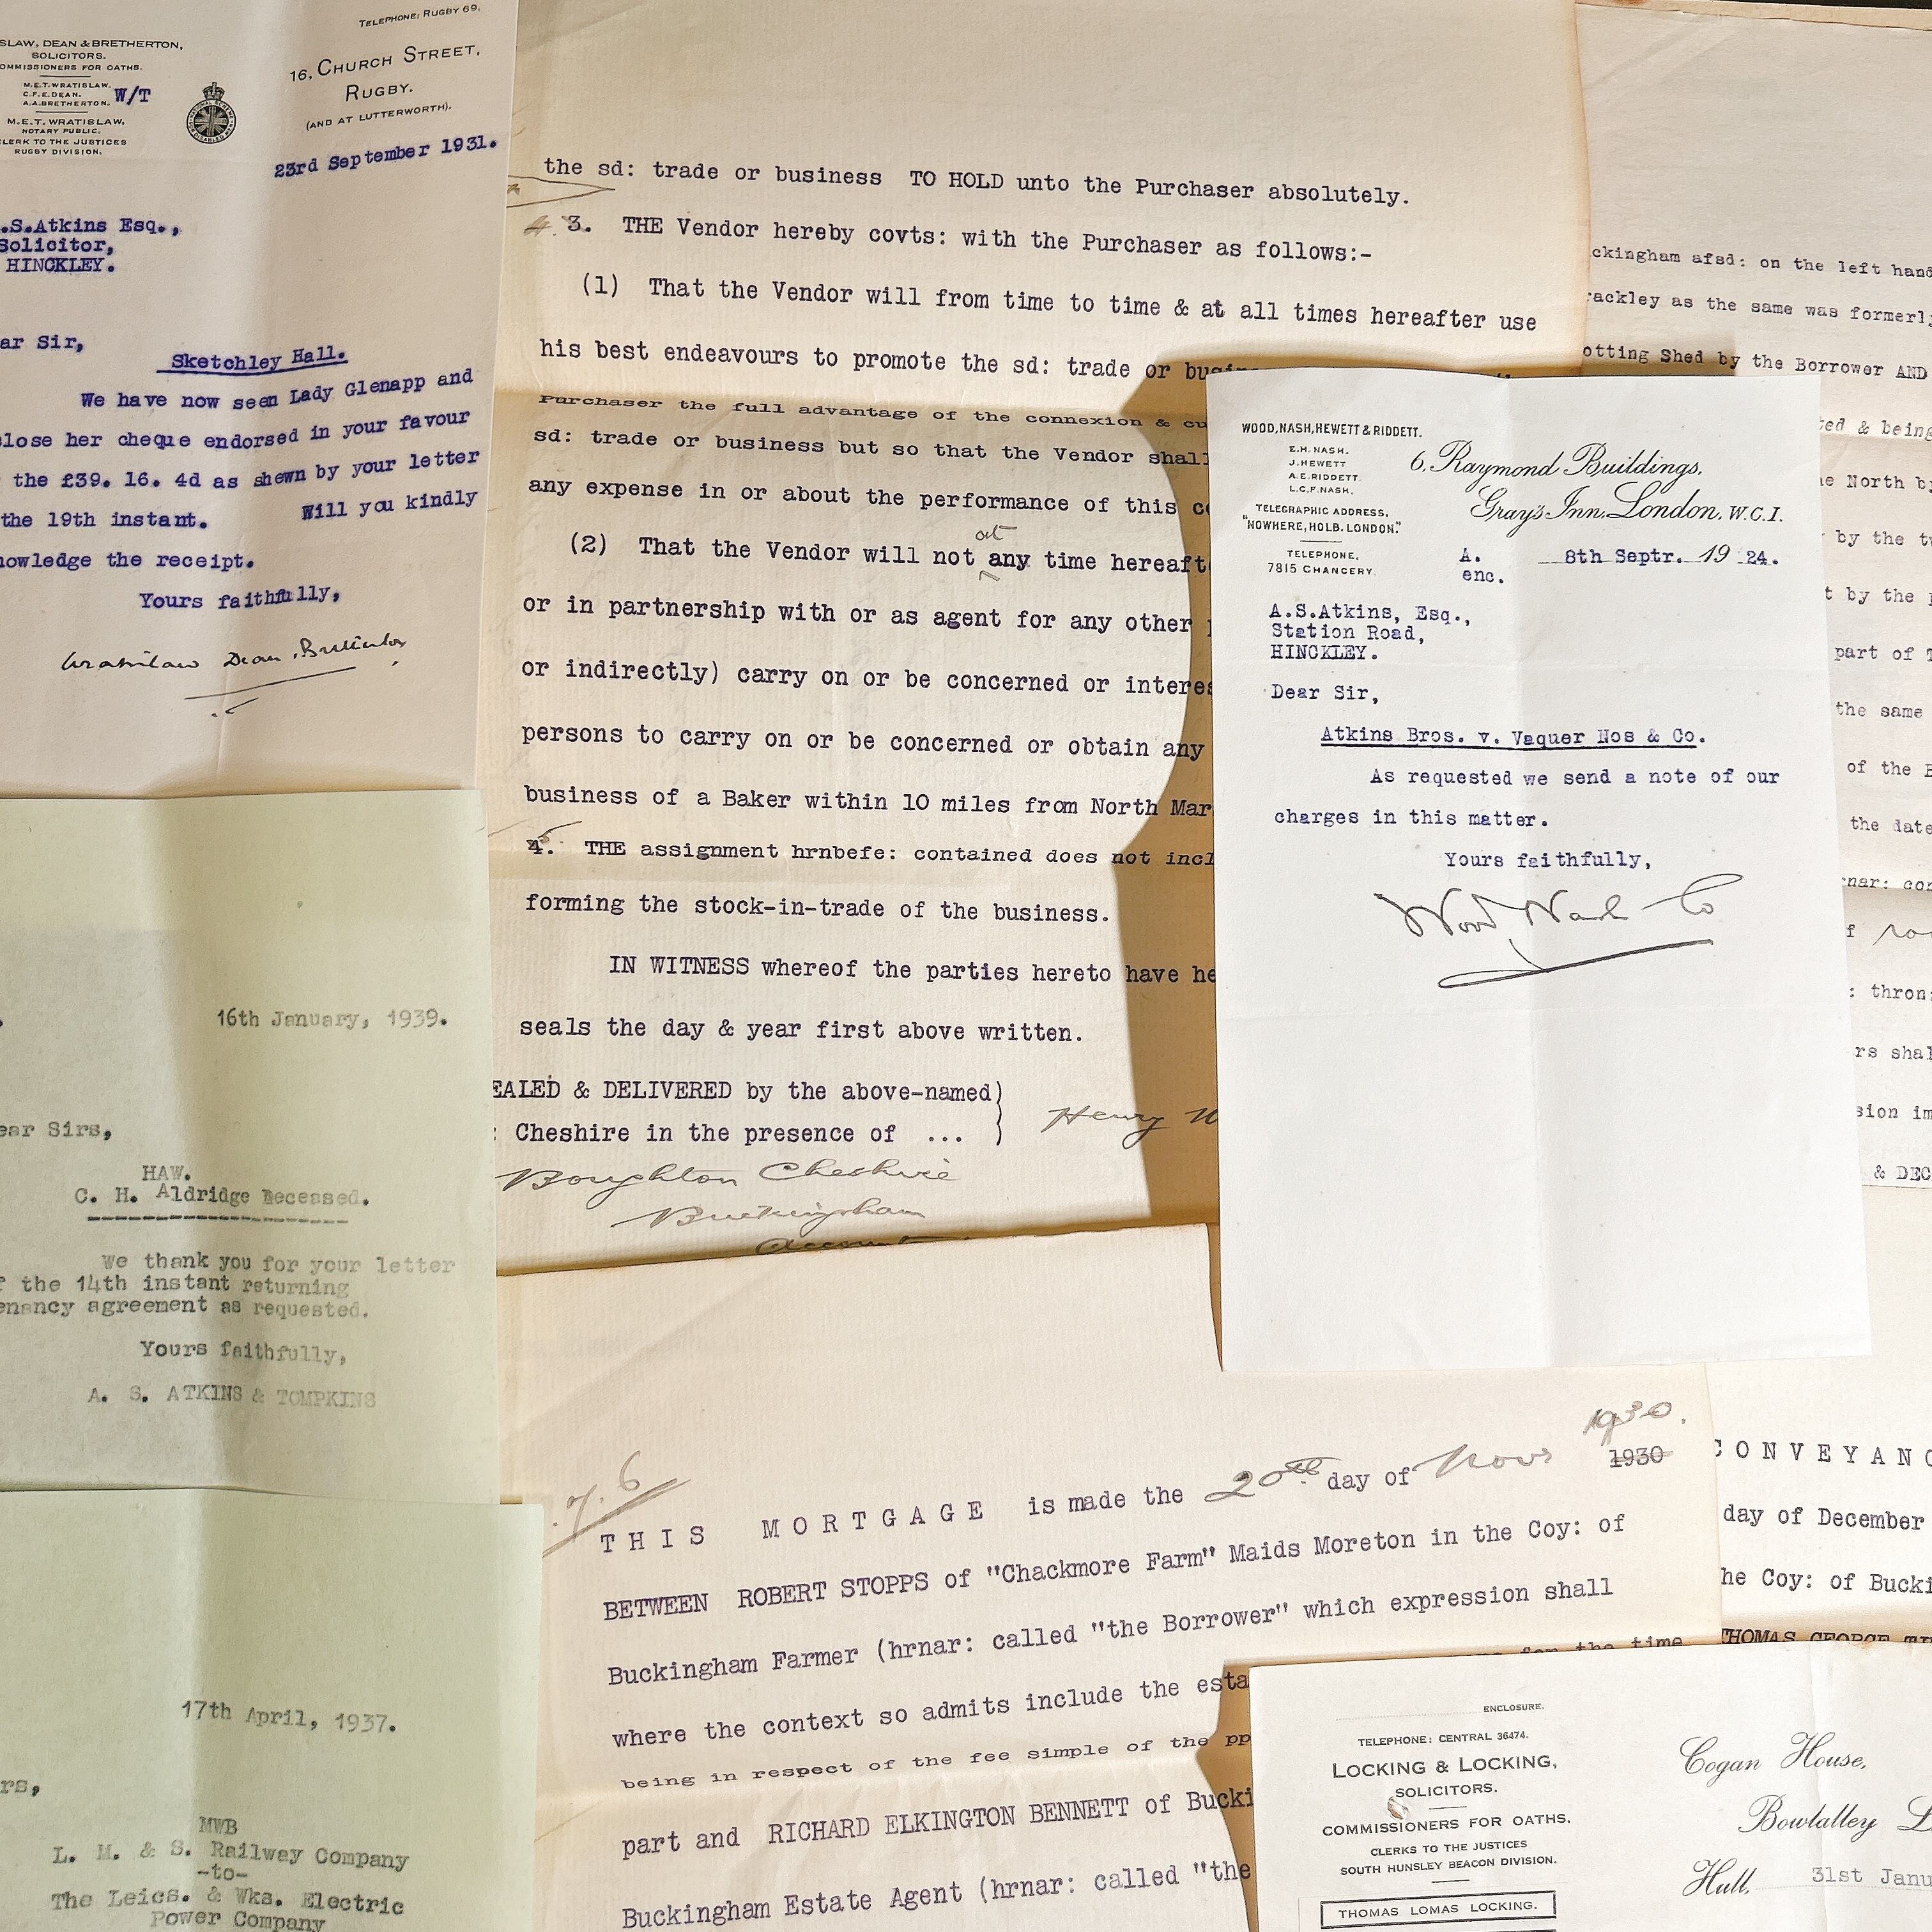 SLAW, DEAN & BRETHERTON,
SOLICITORS.
OMMISSIONERS FOR OATHS.
M.E.T. WRATISLAW.
C.F.E. DEAN.
A.A. BRETHERTON.
W/T
M.E.T. WRATISLAW,
NOTARY PUBLIC,
CLERK TO THE JUSTICES
RUGBY DIVISION.
TELEPHONE: RUGBY 69.
16, CHURCH STREET,
RUGBY.
(AND AT LUTTERWORTH).
23rd September 1931.
.S.Atkins Esq.,
Solicitor,
HINCKLEY.
ar Sir,
Sketchley Hall.
We have now seen Lady Glenapp and
lose her cheque endorsed in your favour
the £39. 16. 4d as shewn by your letter
the 19th instant. Will you kindly
nowledge the receipt.
Yours faithfully,
Wratislaw Dean & Bretherton
16th January, 1939.
ear Sirs,
HAW.
C. H. Aldridge Deceased.
We thank you for your letter
f the 14th instant returning
enancy agreement as requested.
Yours faithfully,
A. S. ATKINS & TOMPKINS
17th April, 1937.
rs,
MWB
L. M. & S. Railway Company
-to-
The Leics. & Wks. Electric
Power Company
the sd: trade or business TO HOLD unto the Purchaser absolutely.
4. 3. THE Vendor hereby covts: with the Purchaser as follows:-
(1) That the Vendor will from time to time & at all times hereafter use
his best endeavours to promote the sd: trade or busin
Purchaser the full advantage of the connexion & cu
sd: trade or business but so that the Vendor shall
any expense in or about the performance of this c
at
(2) That the Vendor will not any time hereaft
or in partnership with or as agent for any other
or indirectly) carry on or be concerned or interes
persons to carry on or be concerned or obtain any
business of a Baker within 10 miles from North Mar
4. THE assignment hrnbefe: contained does not incl
forming the stock-in-trade of the business.
IN WITNESS whereof the parties hereto have he
seals the day & year first above written.
EALED & DELIVERED by the above-named)
: Cheshire in the presence of ... )
Henry W
Boughton Cheshire
Buckingham
Account
WOOD, NASH, HEWETT & RIDDETT.
E.H. NASH.
J. HEWETT
A.E. RIDDETT.
L.C.F. NASH.
TELEGRAPHIC ADDRESS,
"NOWHERE, HOLB. LONDON."
TELEPHONE.
7815 CHANCERY.
6, Raymond Buildings,
Gray's Inn, London, W.C.1.
A.
enc.
8th Septr. 19 24.
A.S.Atkins, Esq.,
Station Road,
HINCKLEY.
Dear Sir,
Atkins Bros. v. Vaquer Nos & Co.
As requested we send a note of our
charges in this matter.
Yours faithfully,
Wood Nash & Co
ckingham afsd: on the left hand
rackley as the same was formerl
otting Shed by the Borrower AND
ted & being
e North by
by the tw
t by the p
part of T
the same
of the B
the date
rnar: con
f
: thron:
rs shal
sion im
& DEC
7.6
1930.
THIS MORTGAGE is made the 20th day of Novr 1930
BETWEEN ROBERT STOPPS of "Chackmore Farm" Maids Moreton in the Coy: of
Buckingham Farmer (hrnar: called "the Borrower" which expression shall
for the time
where the context so admits include the esta
being in respect of the fee simple of the pp
part and RICHARD ELKINGTON BENNETT of Bucki
Buckingham Estate Agent (hrnar: called "the
CONVEYANC
day of December
he Coy: of Bucki
THOMAS GEORGE
ENCLOSURE.
TELEPHONE: CENTRAL 36474.
LOCKING & LOCKING,
SOLICITORS.
COMMISSIONERS FOR OATHS.
CLERKS TO THE JUSTICES
SOUTH HUNSLEY BEACON DIVISION.
THOMAS LOMAS LOCKING.
Cogan House,
Bowlalley L
Hull, 31st Janu